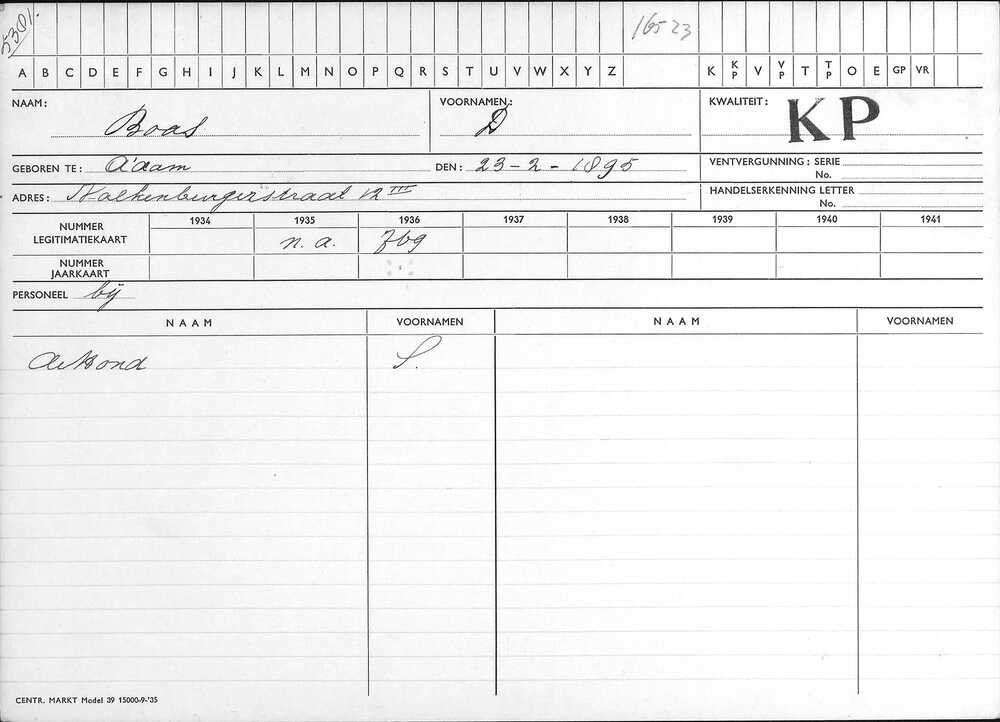 5301.
16523
A B C D E F G H I J K L M N O P Q R S T U V W X Y Z K KP V VP T TP O E GP VR
NAAM: Boas VOORNAMEN: D KWALITEIT: KP
GEBOREN TE: A'dam DEN: 23-2-1895 VENTVERGUNNING: SERIE
No.
ADRES: Valkenburgerstraat 12 III HANDELSERKENNING LETTER
No.
1934 1935 1936 1937 1938 1939 1940 1941
NUMMER LEGITIMATIEKAART n.a. 769
NUMMER JAARKAART
PERSONEEL bij
NAAM VOORNAMEN NAAM VOORNAMEN
de Hond S.
CENTR. MARKT Model 39 15000-9-'35